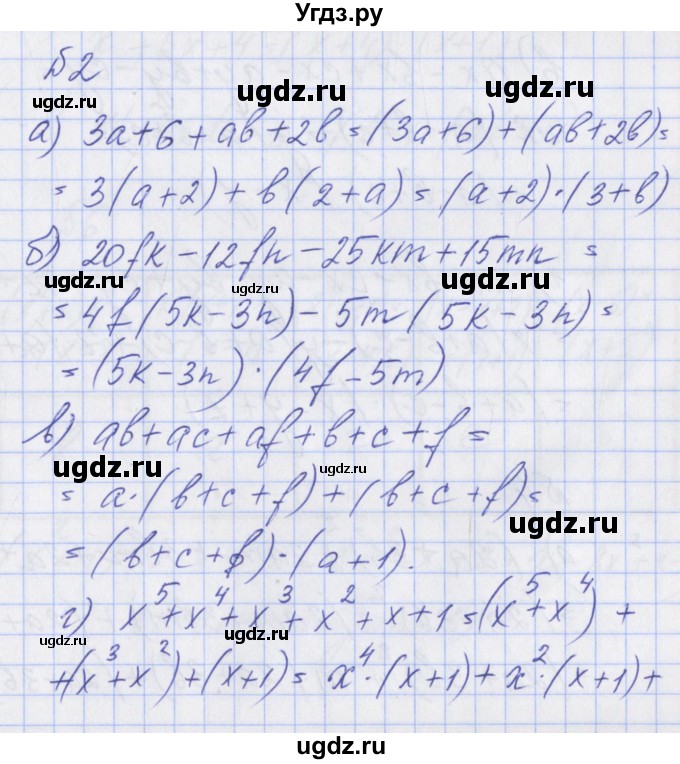 Угдз.ру
Б2
ugdz.ru ugdz.ru
а) 3a+6+ab+2b=(3a+6)+(ab+2b)=
ugdz.ru
= 3(a+2)+b(2+a)=(a+2)·(3+b)
б) 20fk-12fn-25km+15mn =
ugdz.ru ugdz.ru ugdz.ru
= 4f(5k-3n)-5m(5k-3n)=
=(5k-3n)·(4f-5m)
в) ab+ac+af+b+c+f=
ugdz.ru ugdz.ru
= a·(b+c+f)+(b+c+f)=
ugdz.ru
=(b+c+f)·(a+1).
г) x⁵+x⁴+x³+x²+x+1=(x⁵+x⁴)+
ugdz.ru ugdz.ru
+(x³+x²)+(x+1)= x⁴·(x+1)+x²·(x+1)+
ugdz.ru